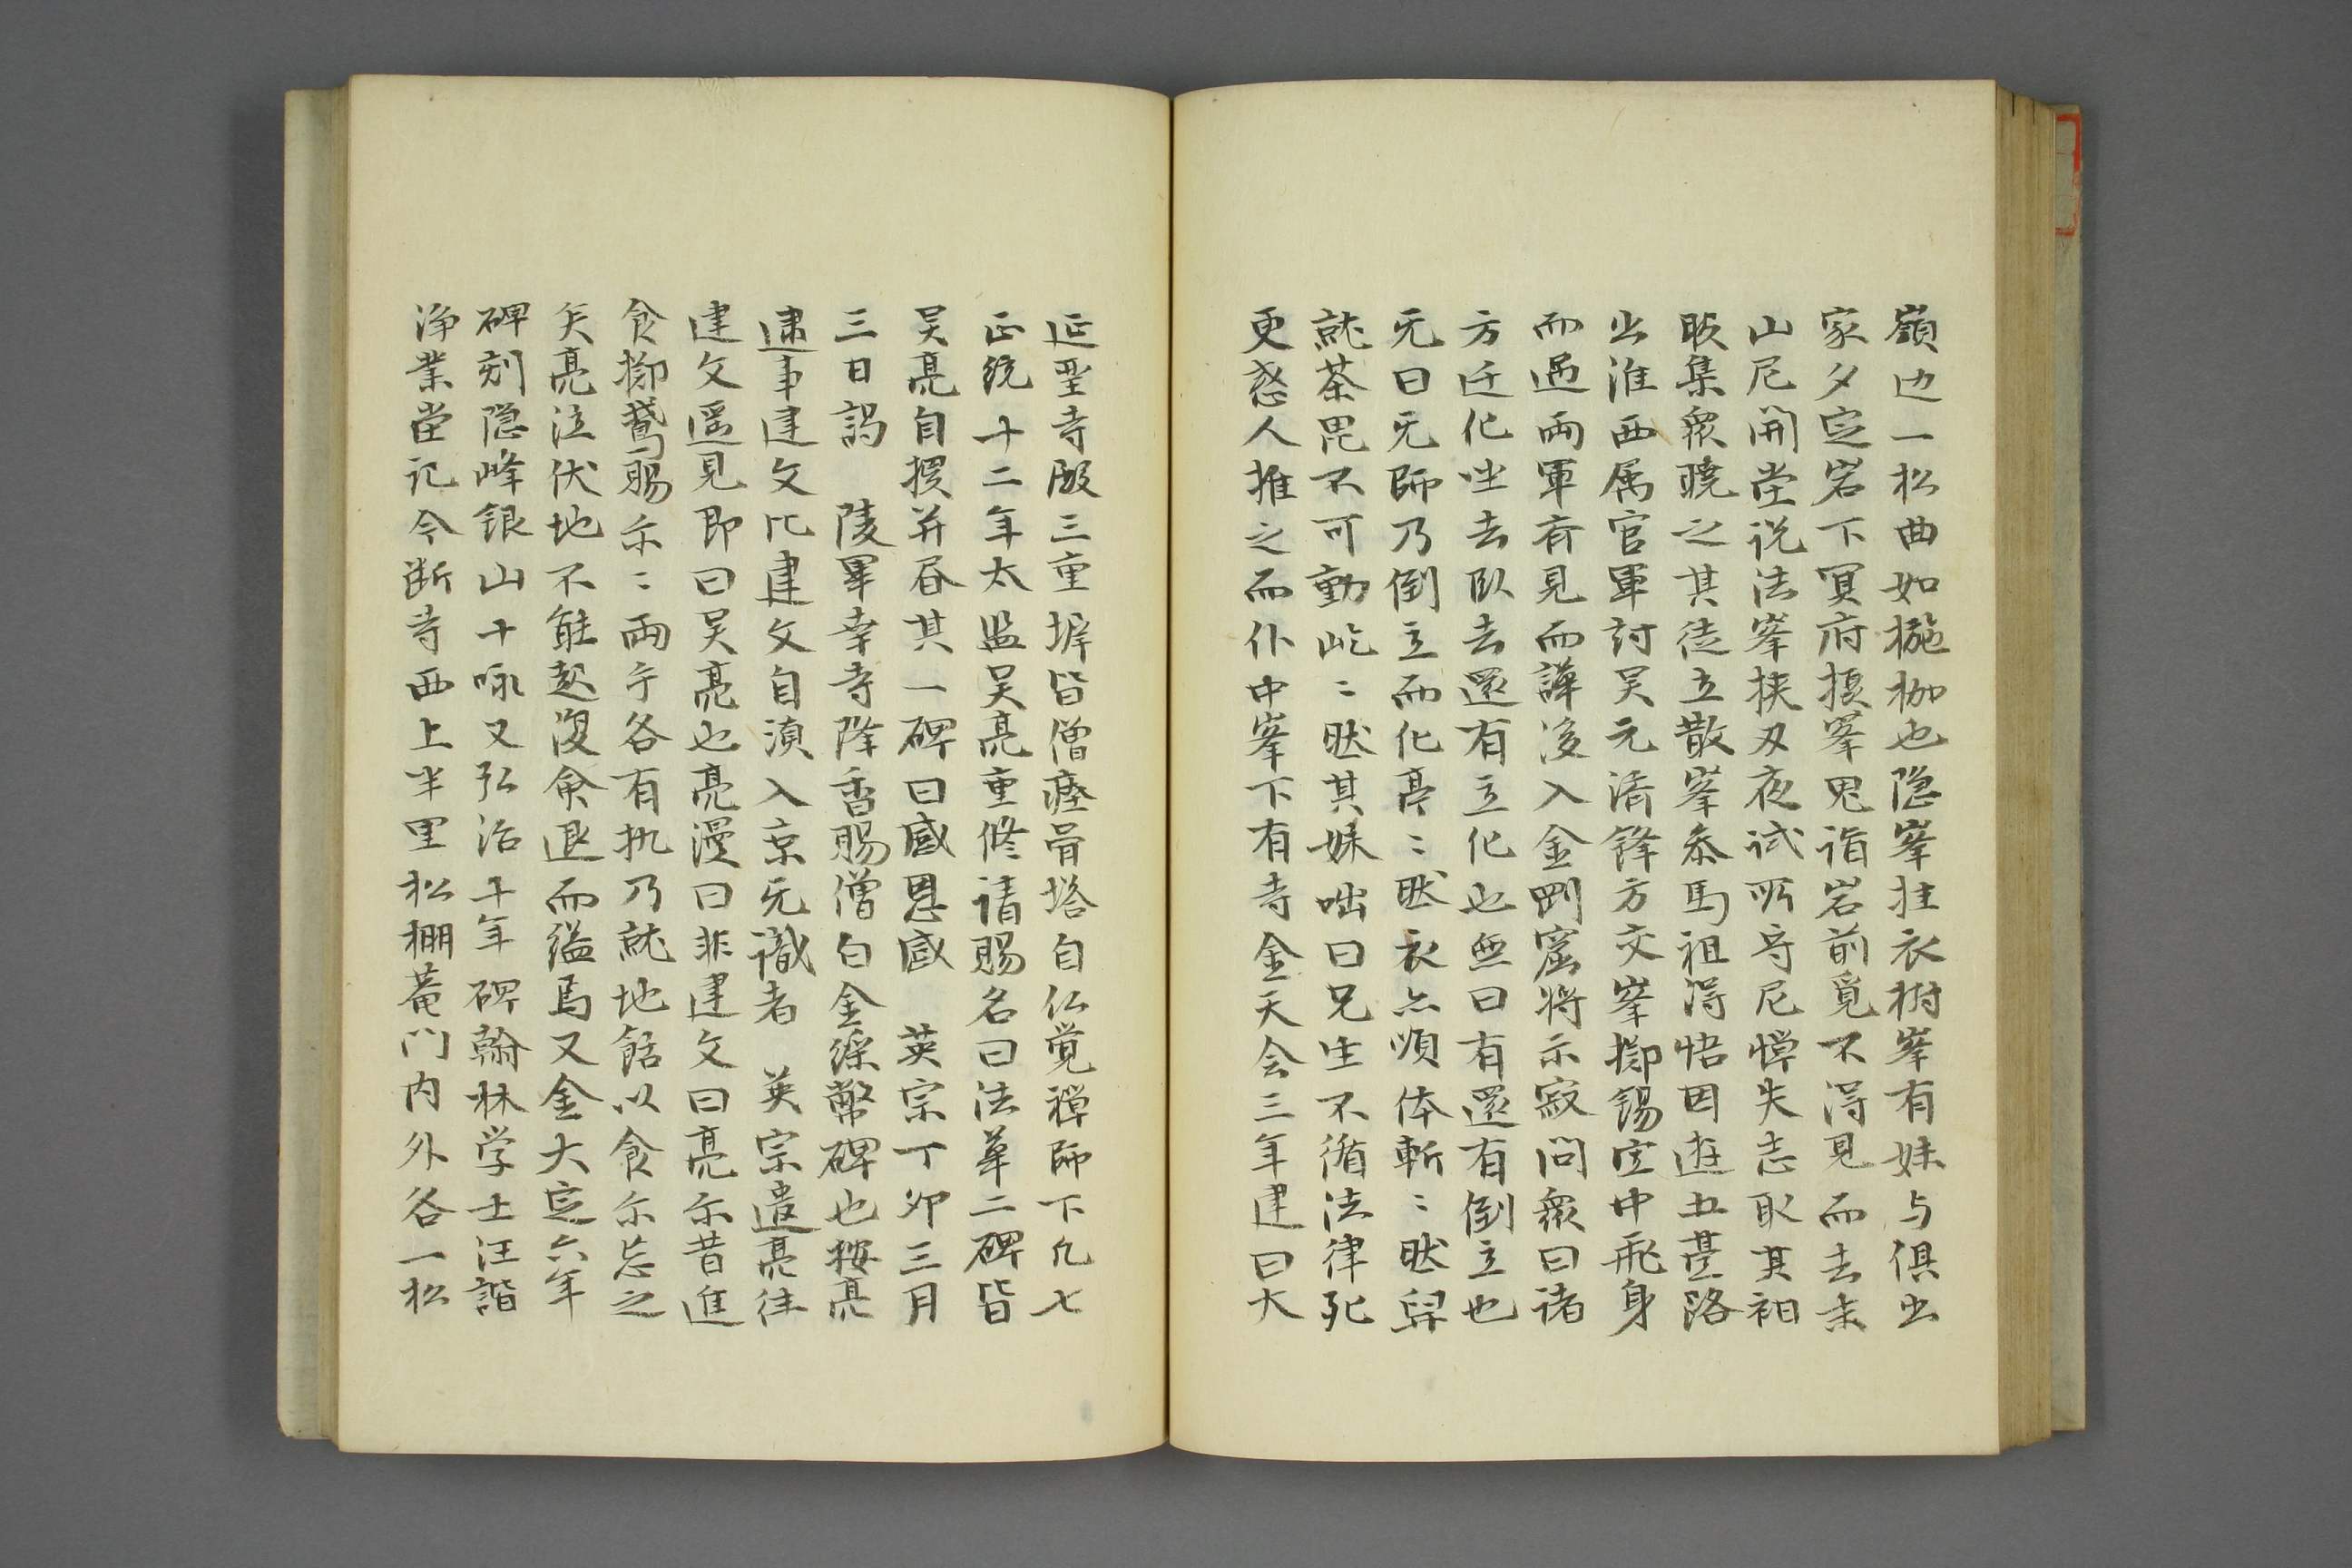 嶺边一松曲如椸枷也隐峯挂衣樹峯有妹与俱出
家夕定岩下冥府摄峯鬼诣岩前覓不淂見而去末
山尼開堂说法峯挟刃夜试所守尼惮失志取其衵
眂集衆曉之其徒立散峯叅馬祖淂悟因遊五䑓路
出淮西属官軍討吴元济鋒方交峯掷锡空中飛身
而過两軍齐見而譁後入金剛窟将示寂问衆曰诸
方迁化坐去臥去還有立化也無曰有還有倒立也
旡曰旡師乃倒立而化亭〻然衣亦順体斬〻然舁
就荼毘不可動屹〻然其妹咄曰兄生不循法律死
更惑人推之而仆中峯下有寺金天会三年建曰大
延聖寺殿三重墀皆僧瘗骨塔自仏覚禅師下凢七
正统十二年太监吴亮重修请賜名曰法華二碑皆
吴亮自撰并各其一碑曰感恩感　英宗丁夘三月
三日謁　陵畢幸寺降香賜僧白金綵幣碑也按亮
逮事建文比建文自滇入京旡識者　英宗遣亮往
建文遥見即曰吴亮也亮漫曰非建文曰亮尔昔進
食掷鵞賜尔〻两手各有执乃就地餂以食尔忘之
矣亮泣伏地不能起復命退而缢焉又金大定六年
碑刻隐峰银山十咏又弘治二年碑翰林学士汪諧
浄業堂记今断寺西上半里松棚菴门内外各一松